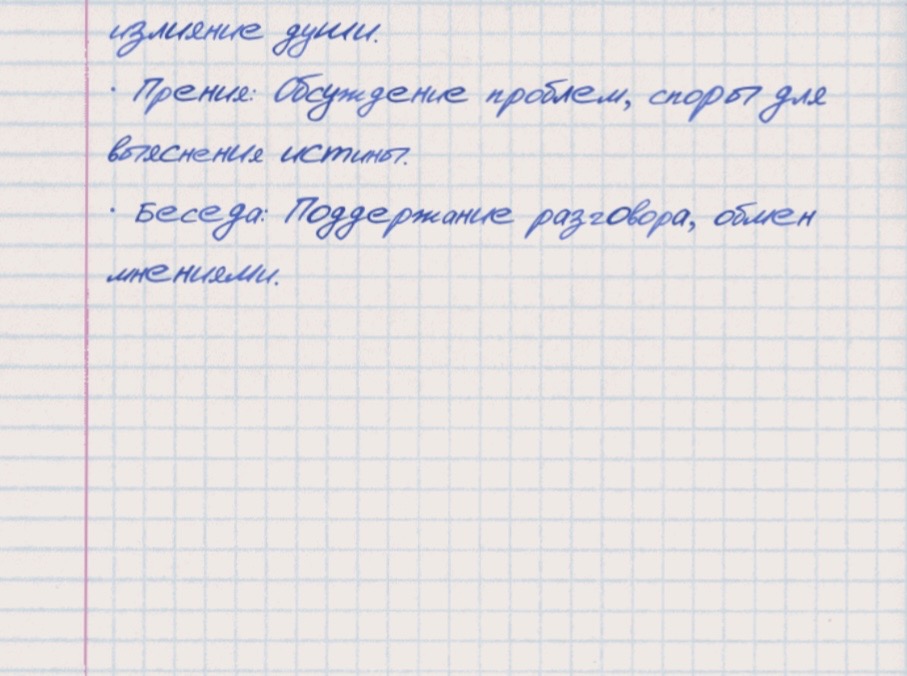 излияние души.
· Прения: Обсуждение проблем, споры для
выяснения истины.
· Беседа: Поддержание разговора, обмен
мнениями.